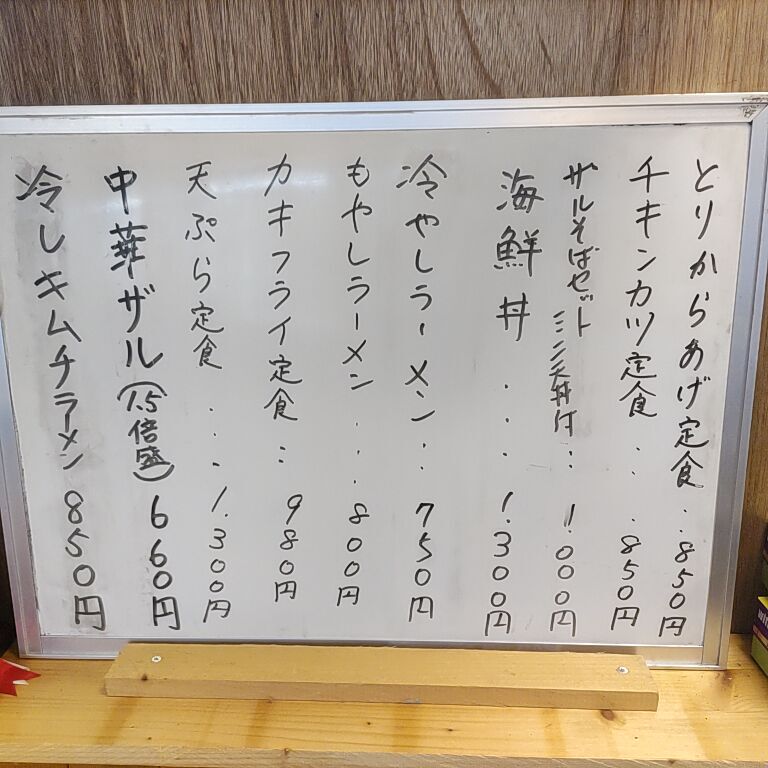 とりからあげ定食‥850円
チキンカツ定食‥.850円
ザルそばセット ミニ天丼付…1.000円
海鮮丼...1.300円
冷やしラーメン‥.750円
もやしラーメン...800円
カキフライ定食‥980円
天ぷら定食...1.300円
中華ザル(1.5倍盛)660円
冷しキムチラーメン850円